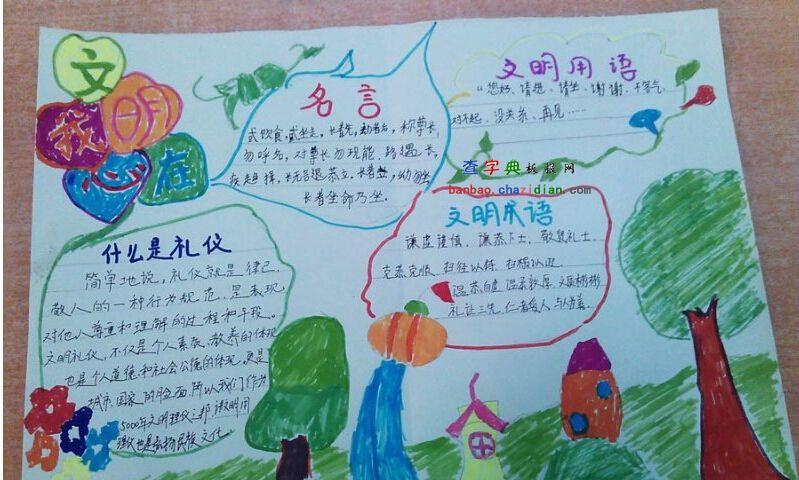 文
明
我
心
在
名言
式饮食,或坐走,长者先,幼者后,称尊长,
勿呼名,对尊长勿现能,路遇长,
疾趋揖,长无言退恭立,长者坐,幼勿坐
长者坐命乃坐.
文明用语
"您好、请进、请坐、谢谢、不客气、
对不起、没关系、再见……
查字典板报网
banbao.chazidian.com
什么是礼仪
简单地说,礼仪就是律己
敬人的一种行为规范,是表现
对他人尊重和理解的过程和手段。
文明礼仪,不仅是个人素质、教养的体现
也是个人道德和社会公德的体现,更是
城市国家的脸面所以我们作为
5000年文明
文明用语
谦虚谨慎,谦恭下士,敬贤礼士
温恭自虚 温柔敦厚 文质彬彬
礼让三先,仁者爱人 与人为善.